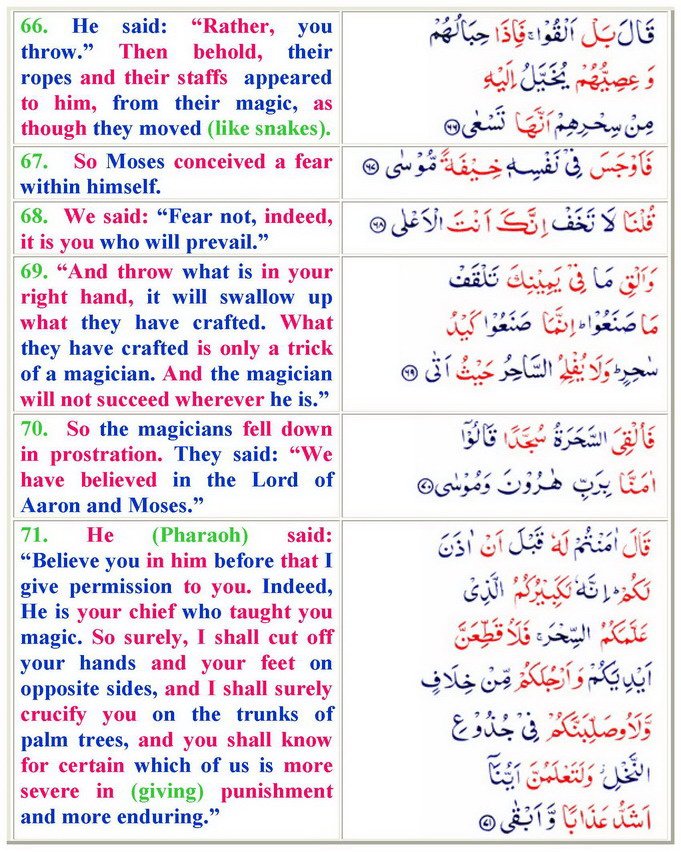 66. He said: “Rather, you
throw.” Then behold, their
ropes and their staffs appeared
to him, from their magic, as
though they moved (like snakes).
قَالَ بَلْ اَلْقُوْا ۚ فَاِذَا حِبَالُهُمْ
وَ عِصِيُّهُمْ يُخَيَّلُ اِلَيْهِ
مِنْ سِحْرِهِمْ اَنَّهَا تَسْعٰى ﴿۶۶﴾
67. So Moses conceived a fear
within himself.
فَاَوْجَسَ فِيْ نَفْسِهٖ خِيْفَةً مُّوْسٰى ﴿۶۷﴾
68. We said: “Fear not, indeed,
it is you who will prevail.”
قُلْنَا لَا تَخَفْ اِنَّكَ اَنْتَ الْاَعْلٰى ﴿۶۸﴾
69. “And throw what is in your
right hand, it will swallow up
what they have crafted. What
they have crafted is only a trick
of a magician. And the magician
will not succeed wherever he is.”
وَاَلْقِ مَا فِيْ يَمِيْنِكَ تَلْقَفْ
مَا صَنَعُوْا ؕ اِنَّمَا صَنَعُوْا كَيْدُ
سٰحِرٍ ؕ وَلَا يُفْلِحُ السَّاحِرُ حَيْثُ اَتٰى ﴿۶۹﴾
70. So the magicians fell down
in prostration. They said: “We
have believed in the Lord of
Aaron and Moses.”
فَاُلْقِيَ السَّحَرَةُ سُجَّدًا قَالُوْۤا
اٰمَنَّا بِرَبِّ هٰرُوْنَ وَمُوْسٰى ﴿۷۰﴾
71. He (Pharaoh) said:
“Believe you in him before that I
give permission to you. Indeed,
He is your chief who taught you
magic. So surely, I shall cut off
your hands and your feet on
opposite sides, and I shall surely
crucify you on the trunks of
palm trees, and you shall know
for certain which of us is more
severe in (giving) punishment
and more enduring.”
قَالَ اٰمَنْتُمْ لَهٗ قَبْلَ اَنْ اٰذَنَ
لَكُمْ ؕ اِنَّهٗ لَكَبِيْرُكُمُ الَّذِيْ
عَلَّمَكُمُ السِّحْرَ ۚ فَلَاُقَطِّعَنَّ
اَيْدِيَكُمْ وَاَرْجُلَكُمْ مِّنْ خِلَافٍ
وَّلَاُوصَلِّبَنَّكُمْ فِيْ جُذُوْعِ
النَّخْلِ ؗ وَلَتَعْلَمُنَّ اَيُّنَاۤ
اَشَدُّ عَذَابًا وَّ اَبْقٰى ﴿۷۱﴾